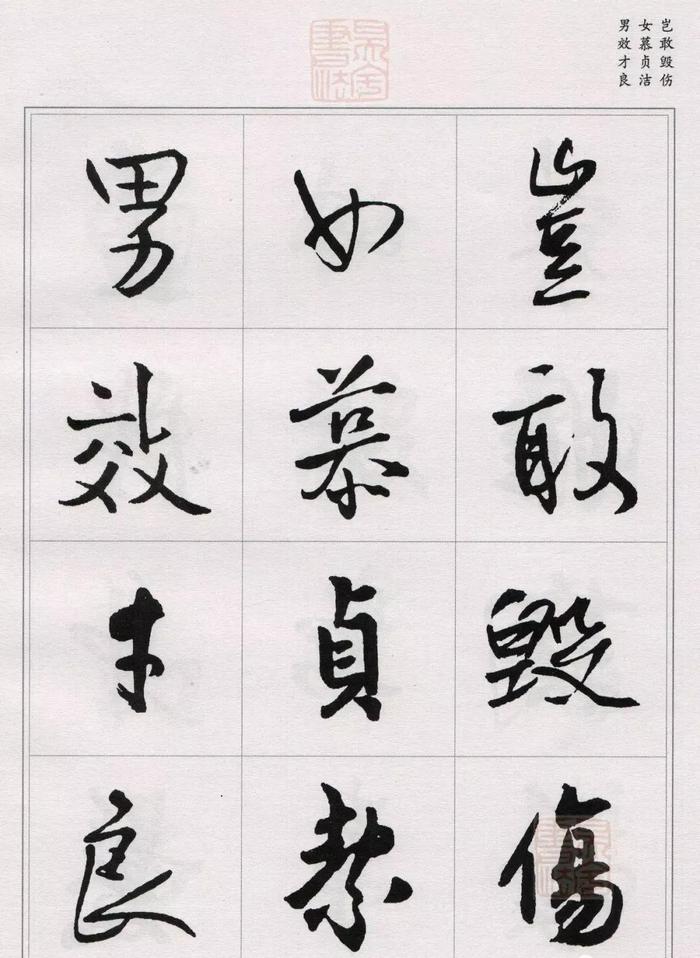 岂敢毁伤
女慕贞洁
男效才良
豈敢毀傷
女慕貞絜
男效才良